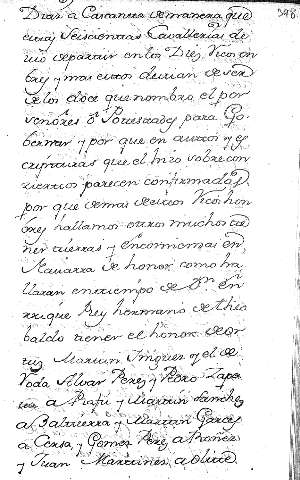 398
Dias a Cascante de manera que
estas seiscientas Cavallerias de
vio departir entre los Diez Ricos on
bres y mas estos devian de ser
de los doce que nombra el por
señores ô Potestades para Go
bernar y por que en autos y es
cripturas que el hizo sobre con
parecen confirmados
por que demas destos Ricos hon
bres hallamos otros muchos te
ner tierras y encomiendas en
Navarra de honor como ha
llaran en tiempo de Dn En
rrique Rey hermano de Theo
baldo tener el honor de
Martin Iñiguez y el de
Roda Alvar Perez y Pedro Zapa
ta a y Martin Sanchez
a Baltierra y Martin Garces
a y Gomez Perez a
y Juan Martinez a Olite